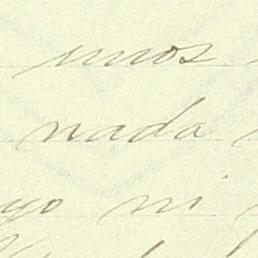 unos
nada
yo ni